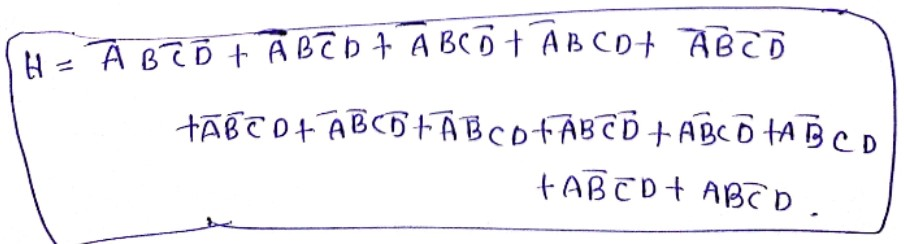 H = A̅ B C̅ D̅ + A̅ B C̅ D + A̅ B C D̅ + A̅ B C D + A̅ B̅ C̅ D̅
+ A̅ B̅ C̅ D + A̅ B̅ C D̅ + A̅ B̅ C D + A B̅ C̅ D̅ + A B̅ C D̅ + A B̅ C D
+ A B̅ C̅ D + A B C̅ D .